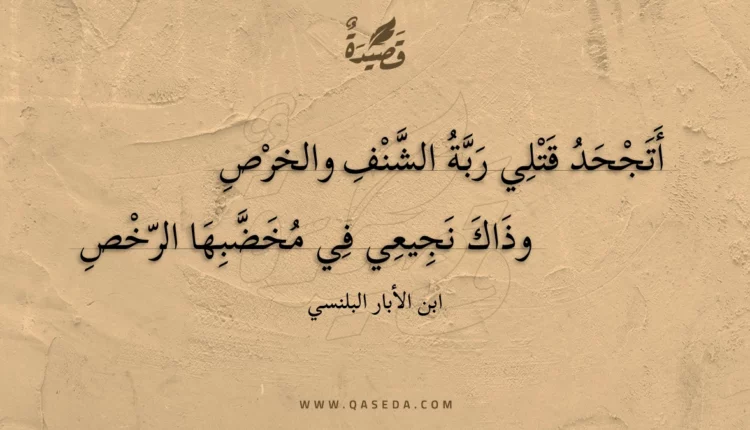 قَصِيدَةٌ
أَتَجْحَدُ قَتْلِي رَبَّةُ الشَّنْفِ والخرْصِ
وذَاكَ نَجِيعِي فِي مُخَضَّبِهَا الرّخْصِ
ابن الأبار البلنسي
WWW.QASEDA.COM